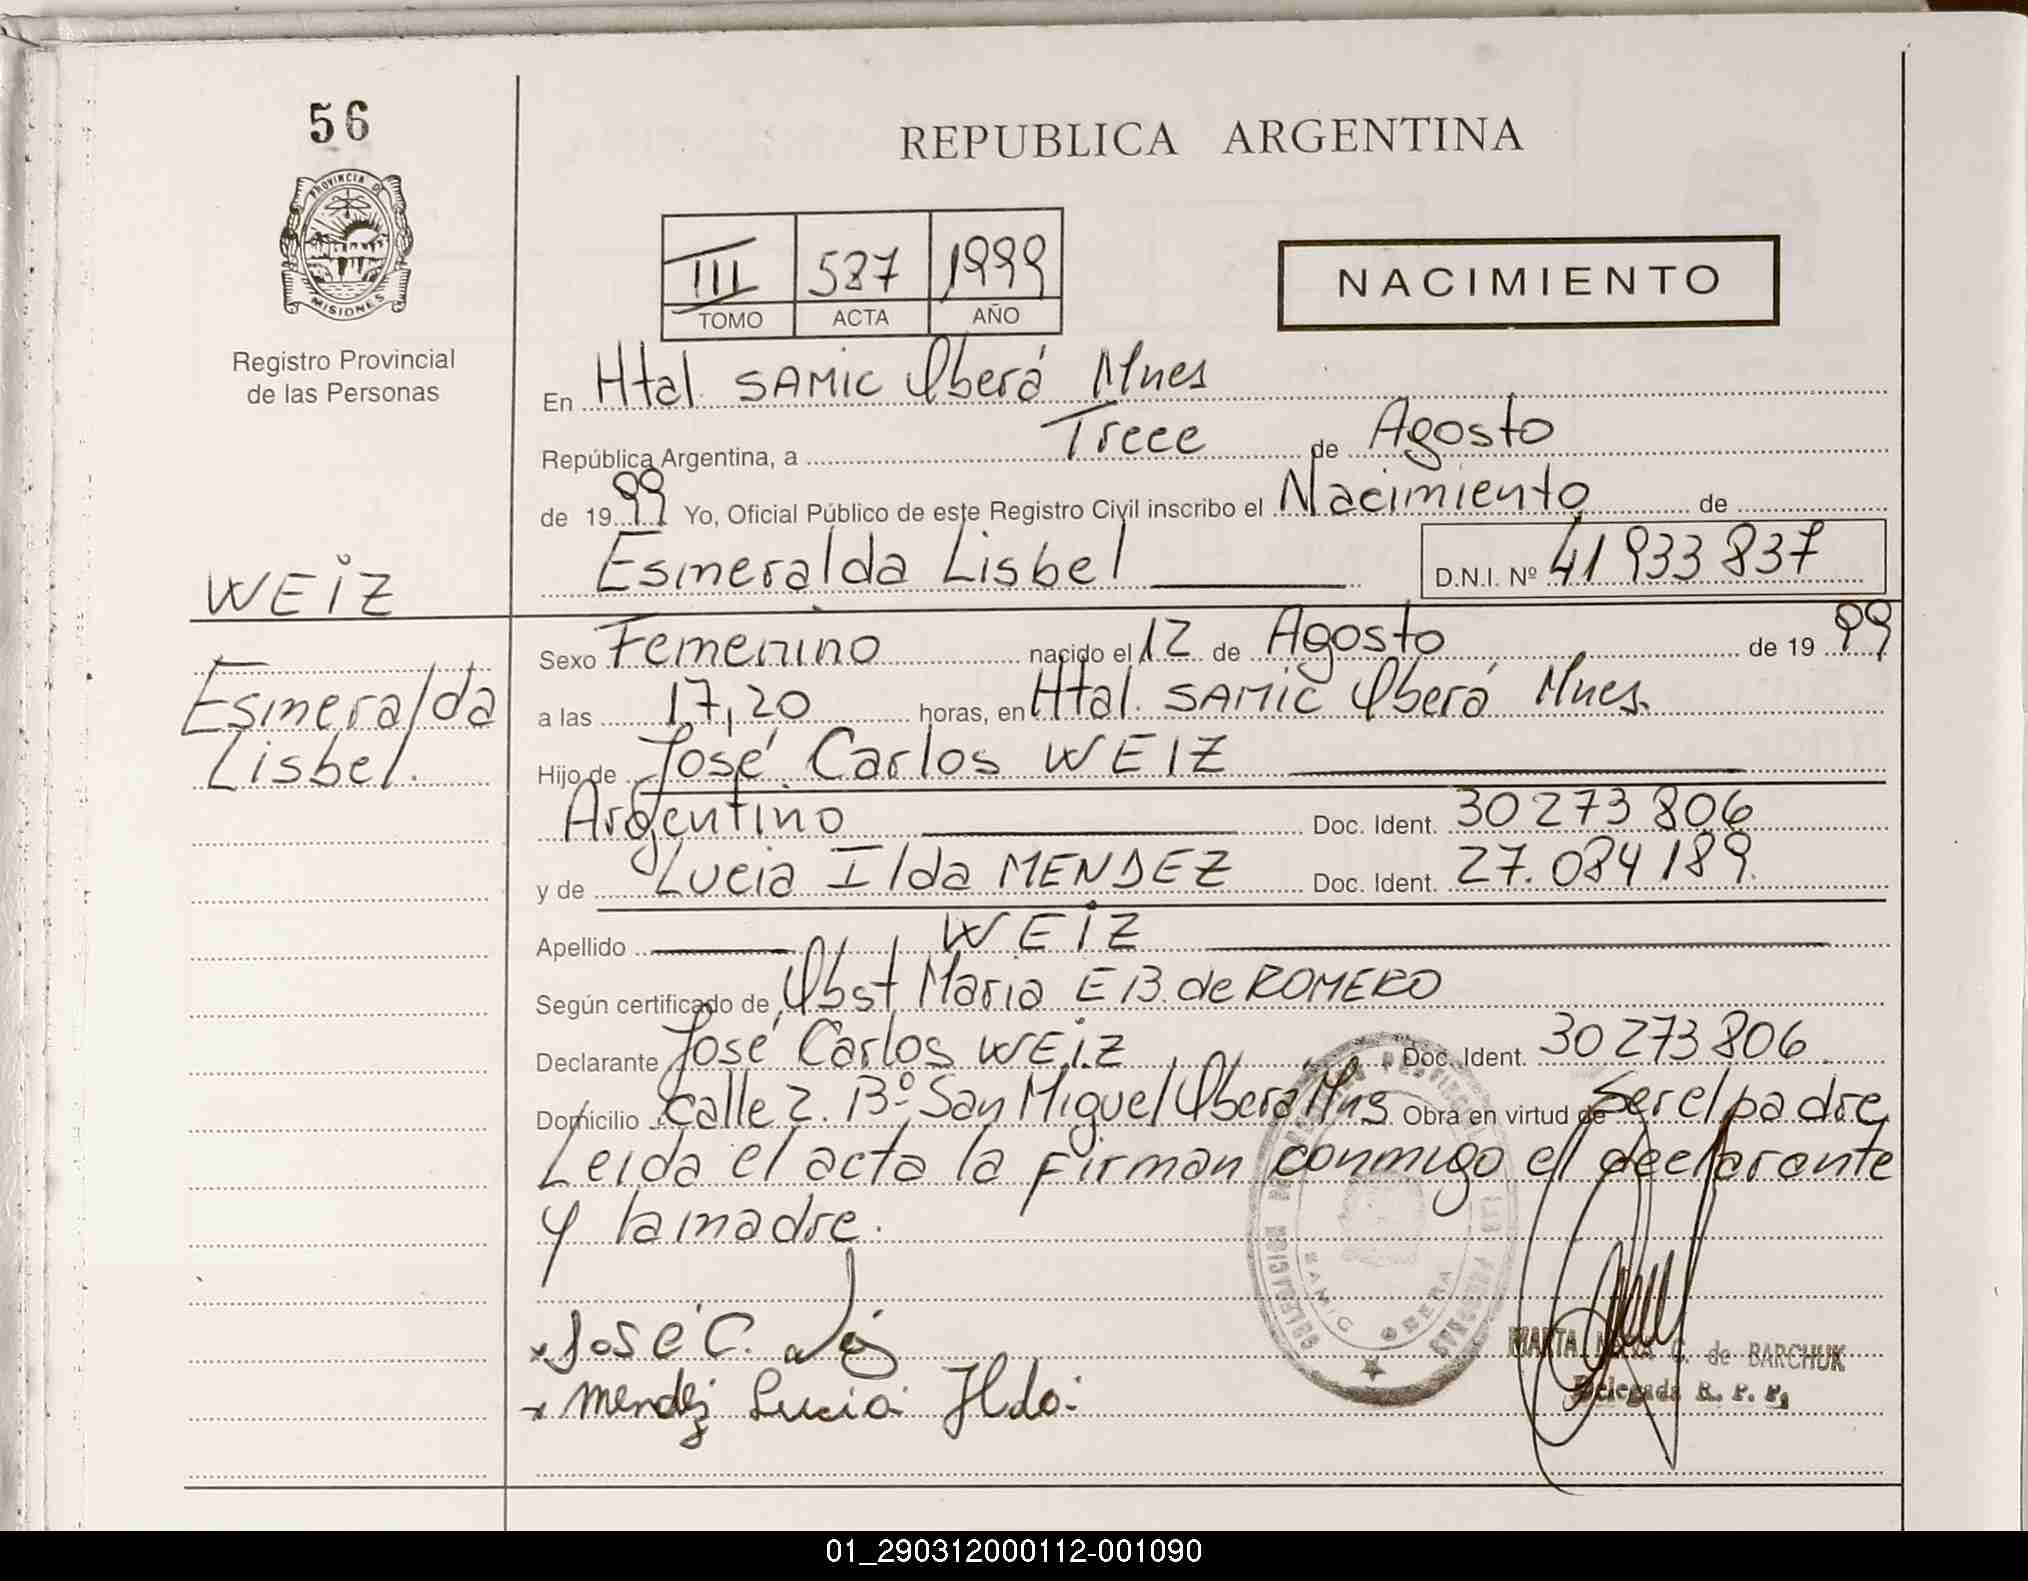 56
PROVINCIA DE
MISIONES
Registro Provincial
de las Personas
REPUBLICA ARGENTINA
III 587 1999
TOMO ACTA AÑO
NACIMIENTO
En Htal. SAMIC Oberá Mnes
República Argentina, a Trece de Agosto
de 1999 Yo, Oficial Público de este Registro Civil inscribo el Nacimiento de
Esmeralda Lisbel D.N.I. Nº 41 933 837
WEIZ
Esmeralda
Lisbel.
Sexo Femenino nacido el 12 de Agosto de 1999
a las 17,20 horas, en Htal. SAMIC Oberá Mnes.
Hijo de José Carlos WEIZ
Argentino Doc. Ident. 30 273 806
y de Lucia Ilda MENDEZ Doc. Ident. 27.084 189.
Apellido WEIZ
Según certificado de Obst Maria E B. de ROMERO
Declarante José Carlos WEIZ Doc. Ident. 30 273 806
Domicilio calle 2. Bº San Miguel Obera Mns Obra en virtud de Ser el padre
Leida el acta la firman conmigo el declarante
y la madre.
x José C.
x Mendez Lucia Ilda
SAMIC OBERA
MARTA C. de BARCHUK
Delegada R. P. P.
01_290312000112-001090